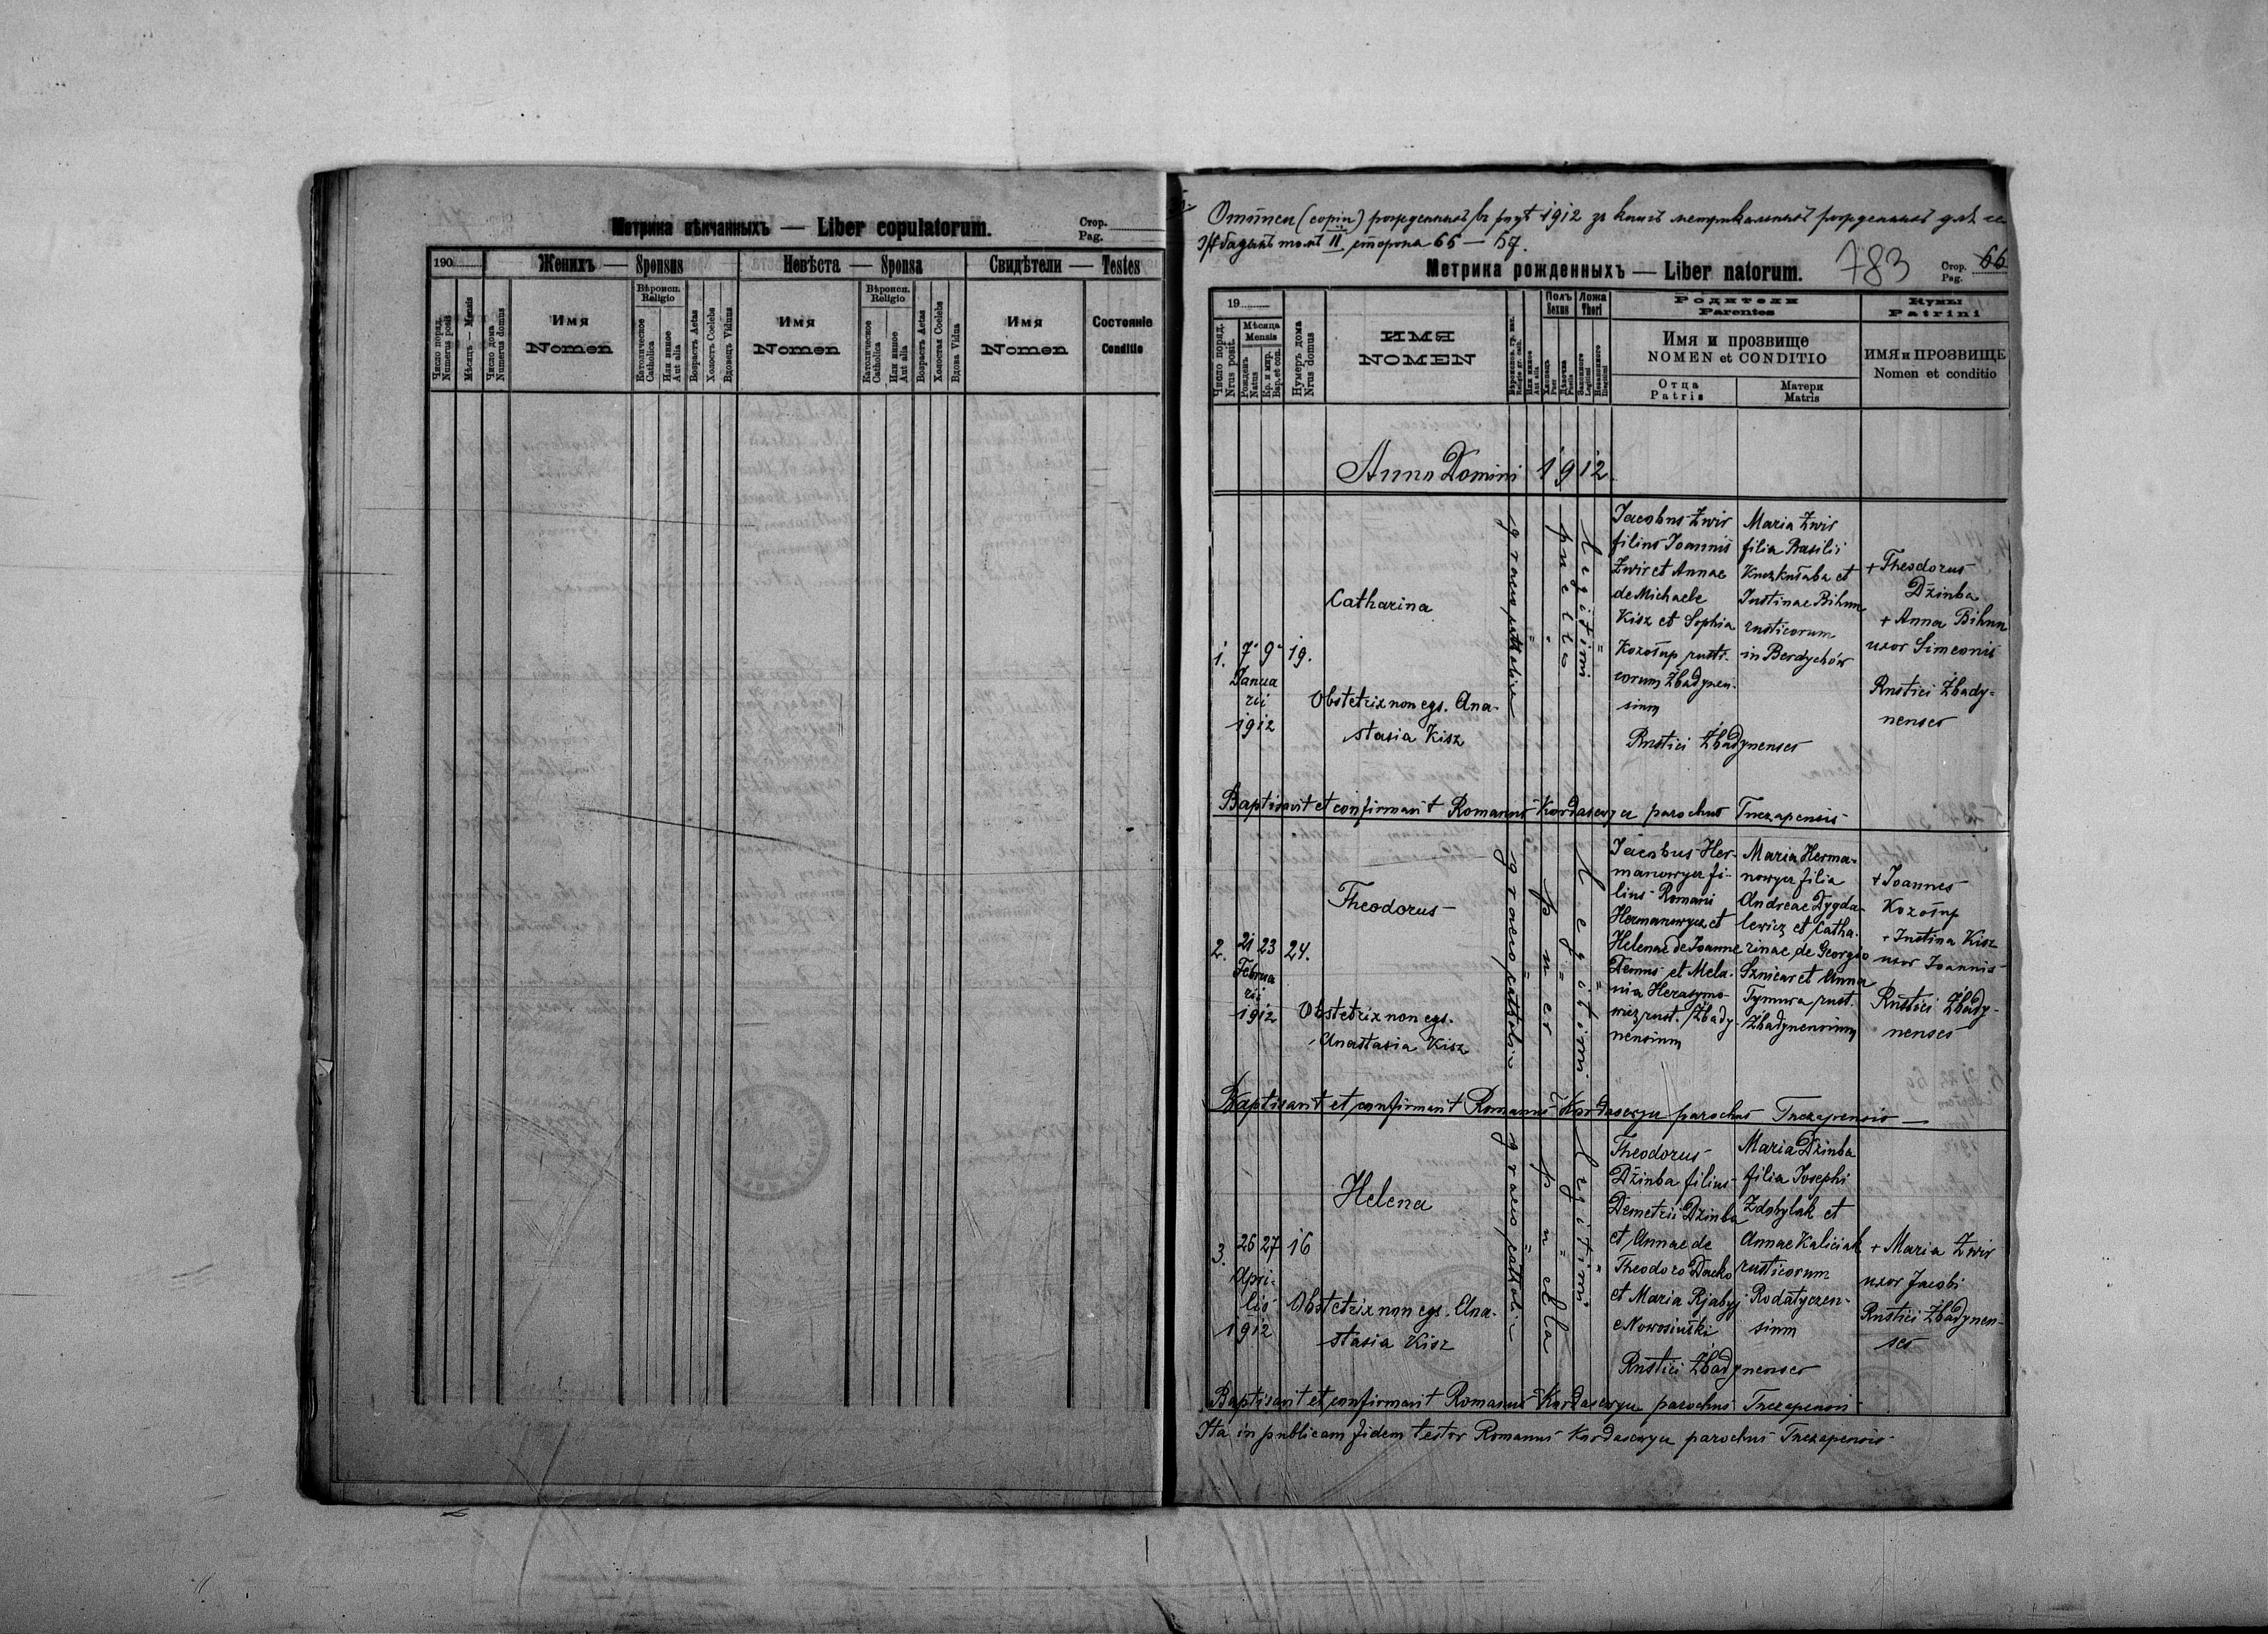 Метрика вѣнчанныхъ — Liber copulatorum.
Стор.
Pag.
190
Женихъ — Sponsus
Невѣста — Sponsa
Свидѣтели — Testes
Число поряд.
Numerus posit
Мѣсяцъ — Mensis
Число дома
Numerus domus
Имя
Nomen
Вѣроисп.
Religio
Католическое
Catholica
Или инное
Aut alia
Возрастъ Aetas
Холостъ Coelebs
Вдовецъ Viduus
Имя
Nomen
Вѣроисп.
Religio
Католическое
Catholica
Или инное
Aut alia
Возрастъ Aetas
Холостая Coelebs
Вдова Vidua
Имя
Nomen
Состояніе
Conditio
(copia) рожденныхъ въ 1912 зъ книгъ метрикальныхъ рожденныхъ для
томъ II сторона 66 — 67.
Метрика рожденныхъ — Liber natorum.
783
Стор.
Pag. 66
19
Число поряд.
Nrus posit.
Мѣсяца
Mensis
Рожденъ
Natus
Кр. и мир.
Bap. et con.
Нумеръ дома
Nrus domus
ИМЯ
NOMEN
Или инное
Aut alia
Полъ
Sexus
Хлопецъ
Puer
Дѣвочка
Puella
Ложа
Thori
Законного
Legitimi
Незаконного
Illegitimi
Родители
Parentes
Имя и прозвище
NOMEN et CONDITIO
Отца
Patris
Матери
Matris
Кумы
Patrini
ИМЯ и ПРОЗВИЩЕ
Nomen et conditio
Anno Domini 1912
1.
7 9 19.
Janua
rii
1912
Catharina
Obstetrix non egs. Ana-
stasia Kisz
graeco catholica
puella
Legitimi
Jacobus Żwir
filius Joannis
Żwir et Annae
de Michaele
Kisz et Sophia
Kozołup rusti-
corum Żbadynen-
sium
Maria Żwir
filia Basilii
et
Justinae Bihun
rusticorum
in Berdychów
Rustici Żbadynenses
+ Theodorus
Dżinba
+ Anna Bihun
uxor Simeonis
Rustici Żbady-
nenses
Baptisavit et confirmavit Romanus Kordasewycz parochus Tuczapensis
2.
21 23 24.
Februa
rii
1912
Theodorus
Obstetrix non egs.
Anastasia Kisz
graeco catholica
puer
Legitimi
Jacobus Her-
manowycz fi-
lius Romani
Hermanowycz et
Helenae de Joanne
Demus et Mela-
nia Herasymo-
wicz rust. Żbady-
nensium
Maria Herma-
nowycz filia
Andreae Dygda-
lewicz et Catha-
rinae de Georgio
Sznicar et Anna
Tymura rust.
Żbadynensium
+ Joannes
Kozołup
+ Justina Kisz
uxor Joannis
Rustici Żbady-
nenses
Baptisavit et confirmavit Romanus Kordasewycz parochus Tuczapensis
3.
26 27 16
Apri-
lis
1912
Helena
Obstetrix non egs. Ana-
stasia Kisz
graeco catholica
puella
Legitimi
Theodorus
Dżinba filius
Demetrii Dżinba
et Annae de
Theodoro Dacko
et Maria Rjabyj
e Nowosiułki
Maria Dżinba
filia Josephi
Zdobylak et
Annae Kaliciak
rusticorum
Rodatyczen-
sium
Rustici Żbadynenses
+ Maria Żwir
uxor Jacobi
Rustici Żbadynen-
ses
Baptisavit et confirmavit Romanus Kordasewycz parochus Tuczapensis
Ita in publicam fidem testor Romanus Kordasewycz parochus Tuczapensis